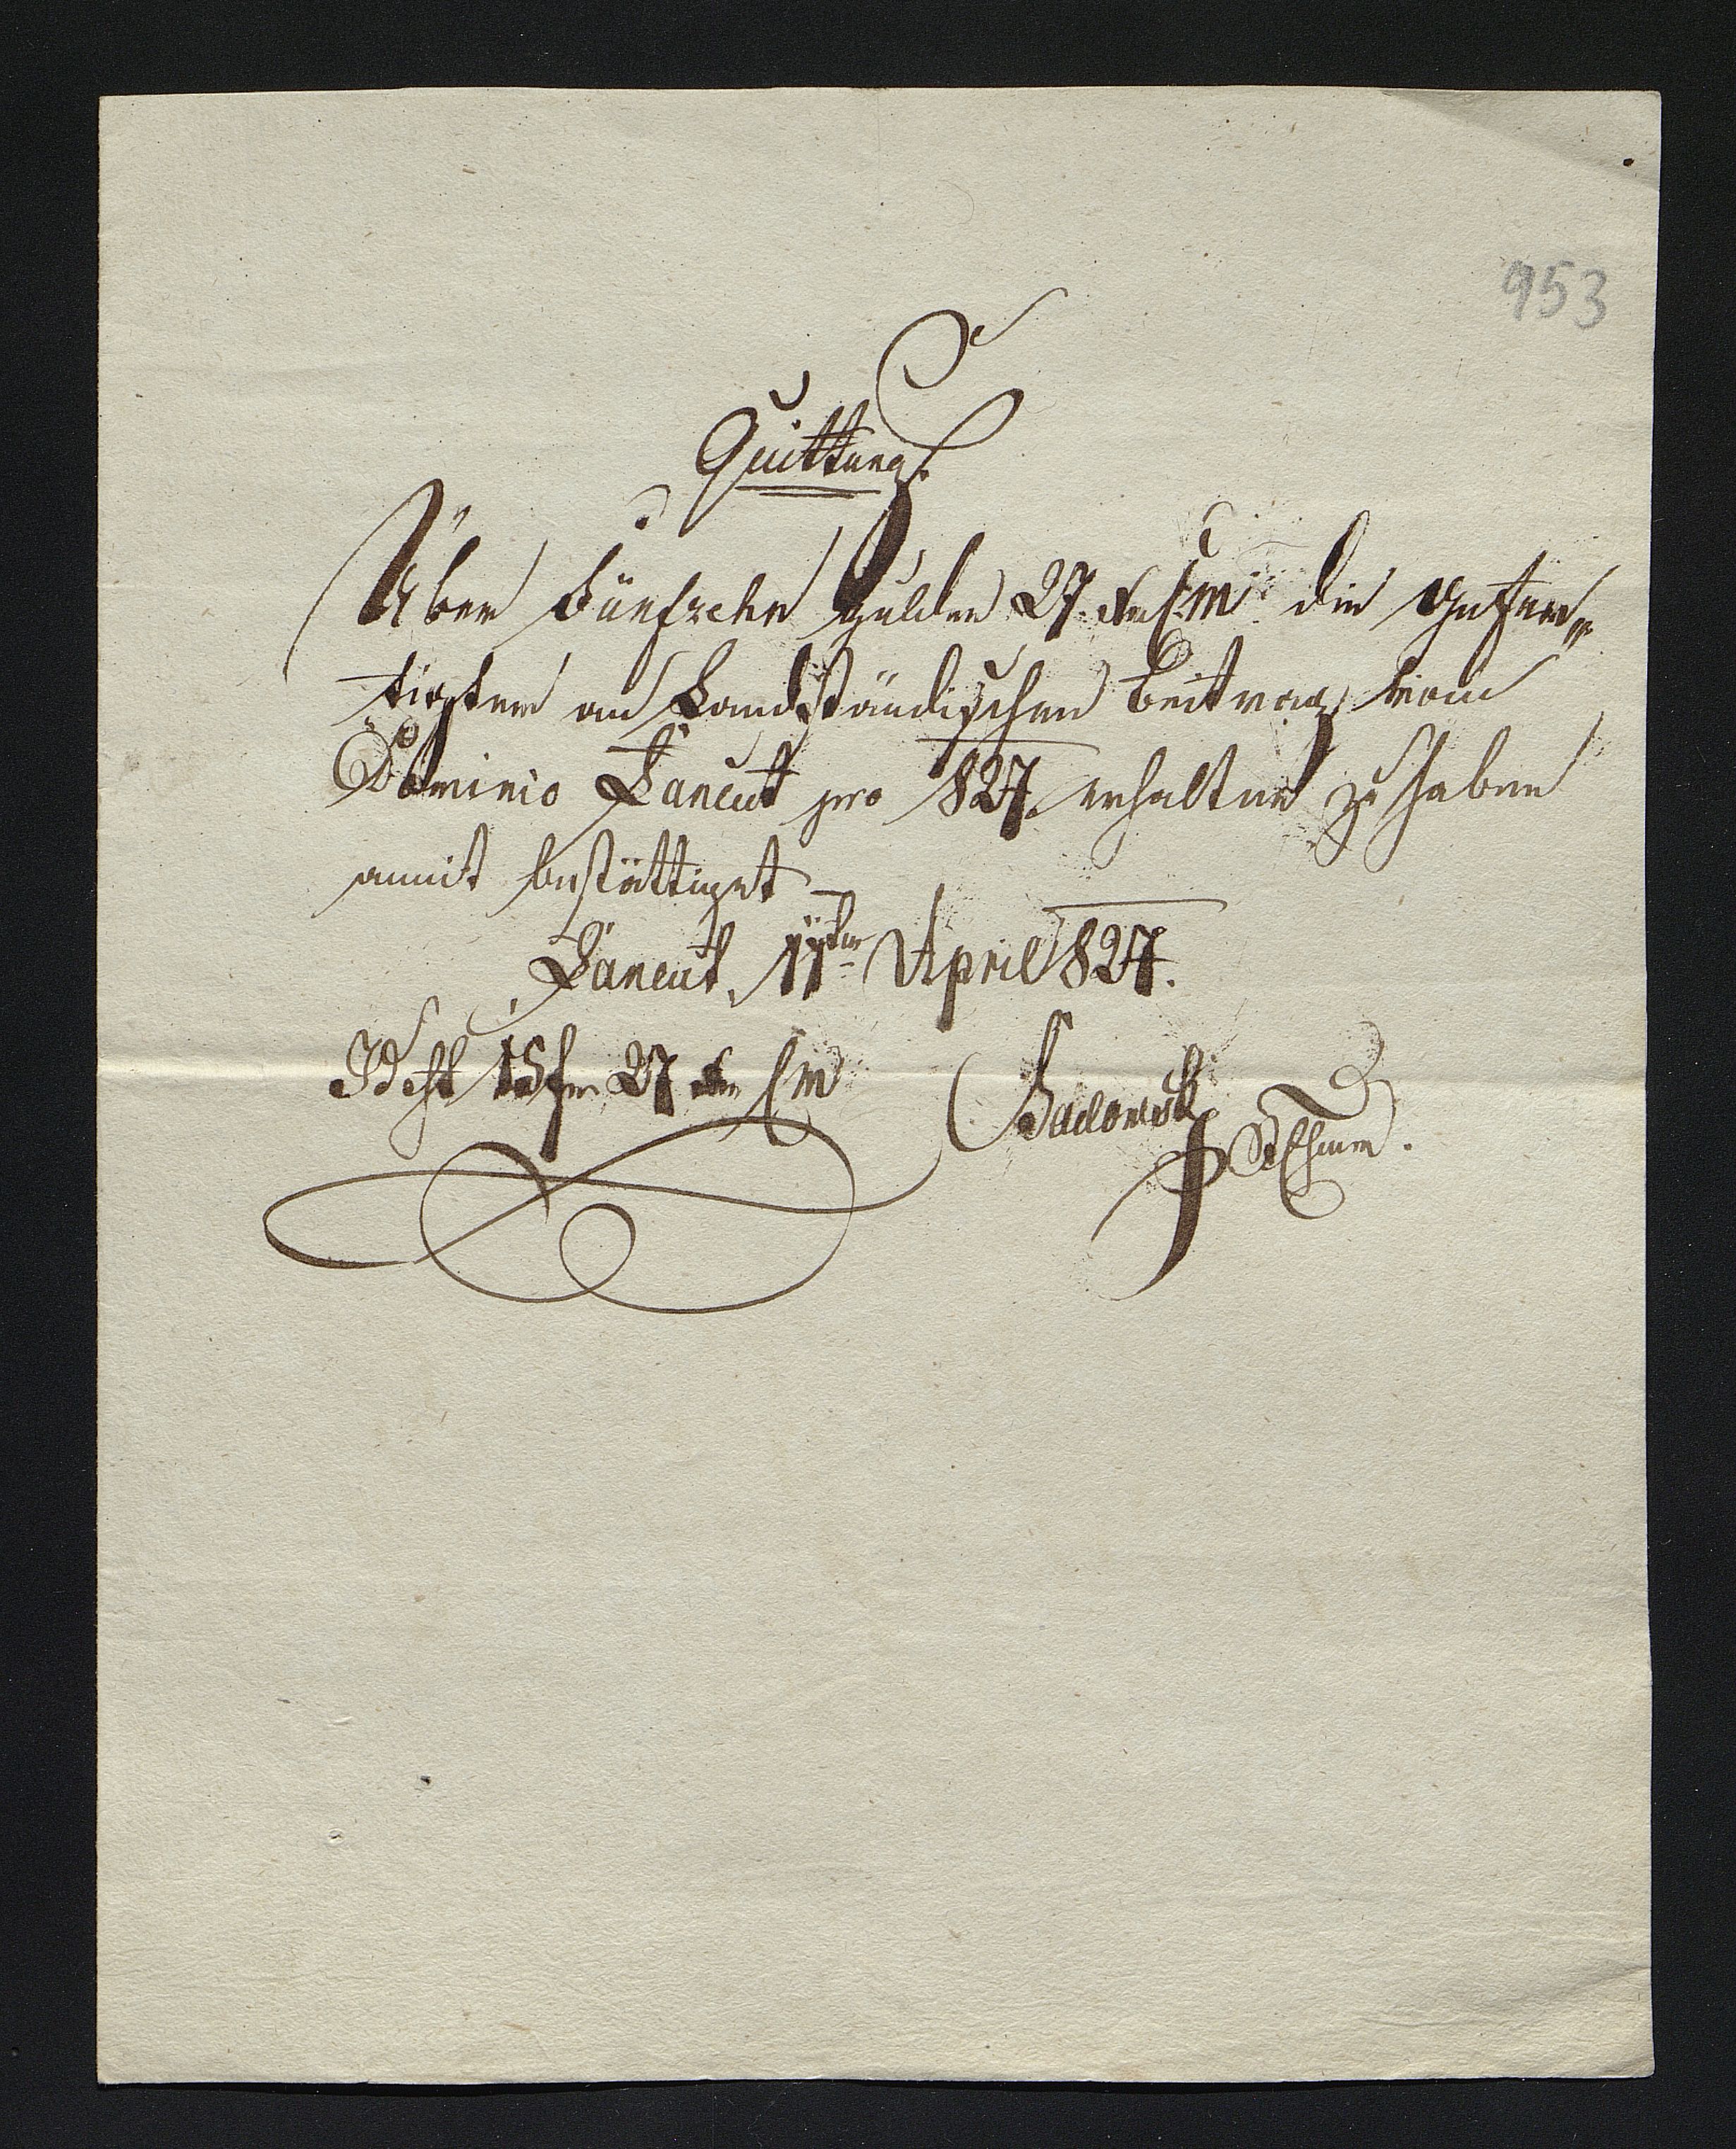 953
Quittung
Über Fünfzehn Gulden 27. Xr CM die Gefer„
tigter an Landständischen Beitrag vom
Dominio Łancut pro 827. erhalten zu haben
amit bestättiget
Łancut, 11ten April 827.
Idest 15 fr 27 Xr CM
Sadowski